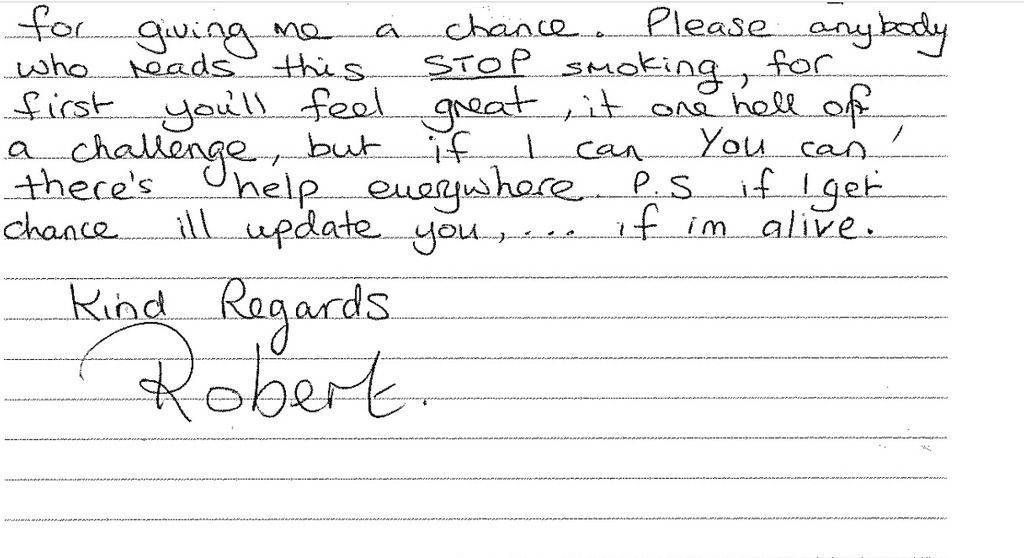 for giving me a chance. Please anybody
who reads this STOP smoking, for
first you'll feel great, it one hell of
a challenge, but if I can You can'
there's help everywhere. P.S if I get
chance ill update you,... if im alive.
Kind Regards
Robert.